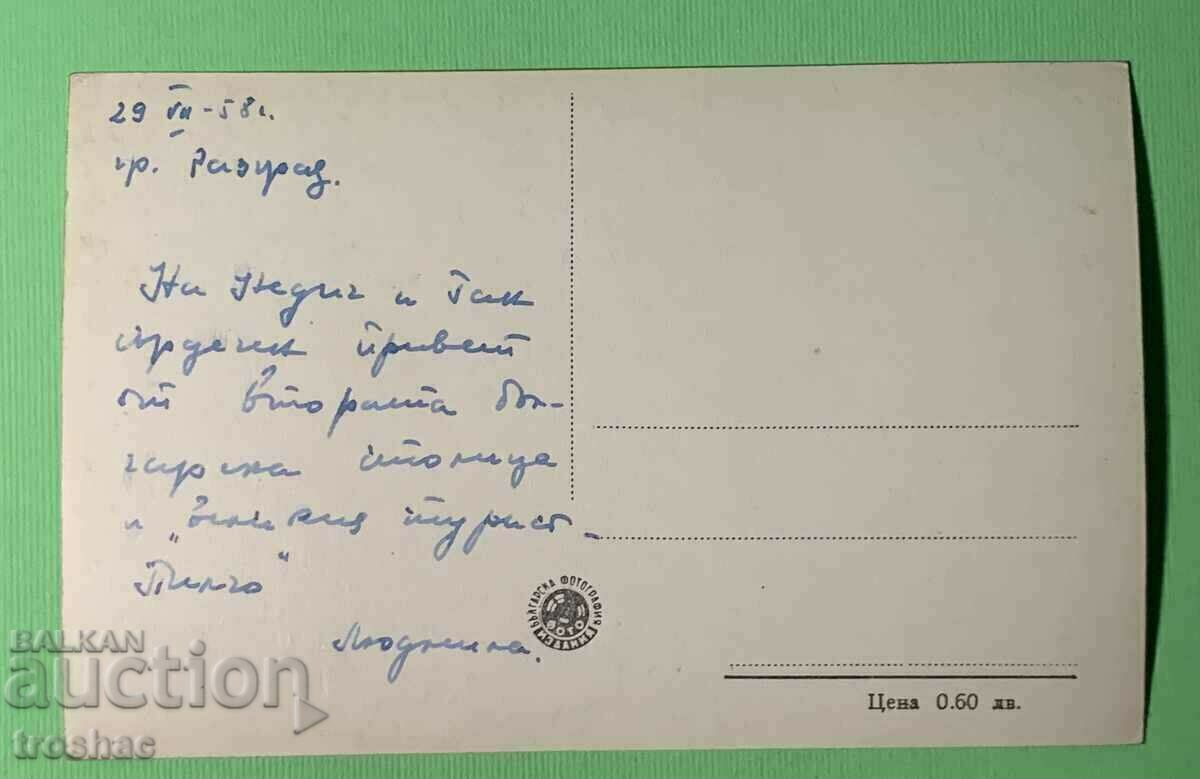 29 VII - 58 г.
гр. Разград.
На Недич и Ган
сърдечен привет
от втората бъл-
гарска столица
и „великия турист -
Пенчо"
Людмила.
БЪЛГАРСКА ФОТОГРАФИЯ
ФОТО
ИЗДАНИЯ
Цена 0.60 лв.
BALKAN
auction
troshac